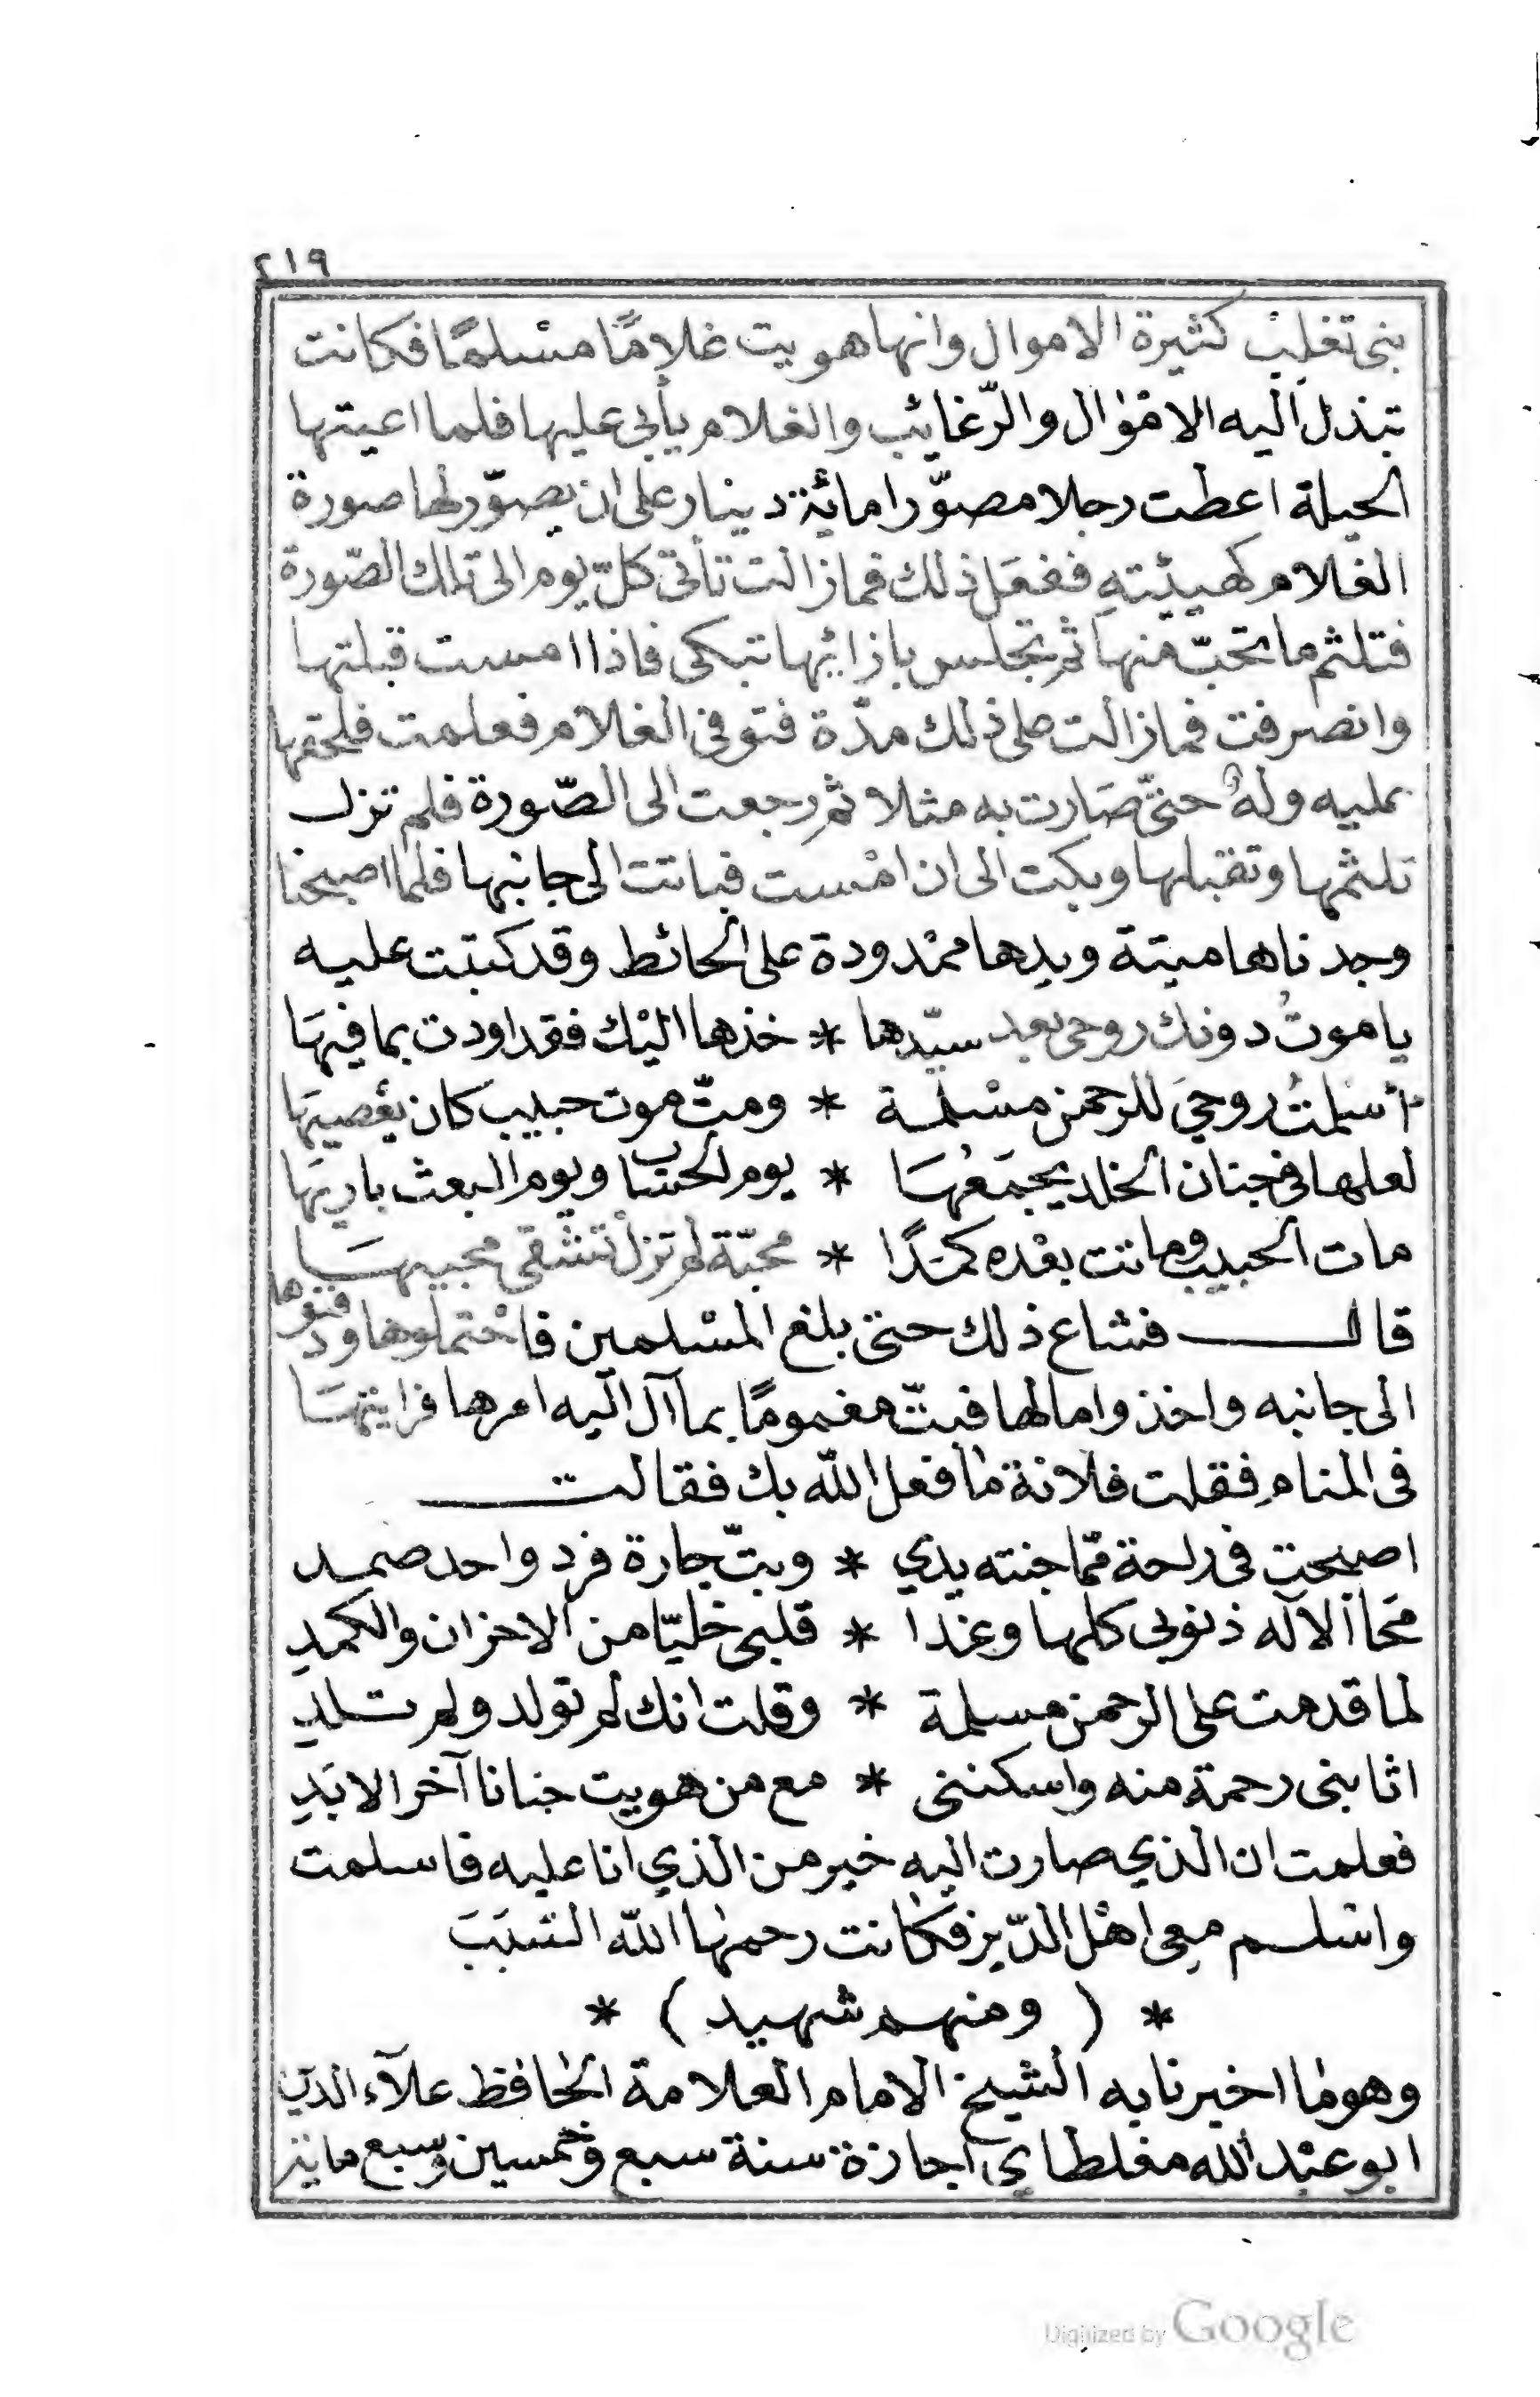 ٢١٩
بنى تغلب كثيرة الاموال وانها هويت غلامًا مسلمًا فكانت
تبذل اليه الاموال والرّغائب والغلام يأبى عليها فلما اعيتها
الحيلة اعطت رجلا مصوّرا مائة دينار على ان يصوّر لها صورة
الغلام كهيئتهِ ففعل ذلك فمازالت تأتى كلّ يوم الى تلك الصّورة
فتلثم ما تحبّ منها ثم تجلس بازائها تبكى فاذا امست قبلتها
وانصرفت فمازالت على ذلك مدّة فتوفى الغلام فعلمت فلحقها
عليه وله حتىّ صارت به مثلا ثم رجعت الى الصّورة فلم تزل
تلثمها وتقبلها وبكت الى ان امست فباتت الى جانبها فلما اصبحنا
وجدناها ميتة ويدها ممدودة على الحائط وقد كتبت عليه
يا موتُ دونك روحى بعد سيّدها * خذها اليْك فقد اودت بما فيهَا
أسلمتُ روحيَ للرحمن مسْلمة * ومتّ موت حبيب كان يعصيهَا
لعلها فى جنان الخلد يجمَعُهَا * يوم الحساب ويوم البعث باريهَا
مات الحبيب وماتت بعْده كمَدًا * محبّة لم تزل تشقى محبيهَا
قال فشاع ذلك حتى بلغ المسْلمين فاحتملوها ودفنوها
الى جانبه واخذوا مالها فبتّ مغمومًا بما آل اليه امرها فرايتهَا
فى المنام فقلت فلانة ما فعل الله بك فقالت
اصبحت فى راحة ممّا جنته يدي * وبتّ جارة فرد واحد صمد
مَحا الاله ذنوبى كلها وغدا * قلبى خليّا من الاحزان والكمدِ
لما قدمت على الرحمن مسلمة * وقلت انك لم تولد ولم تلدِ
اثابنى رحمة منه واسكننى * مع من هويت جنانا آخر الابَدِ
فعلمت ان الذي صارت اليه خير من الذي انا عليه فاسلمت
واسْلم معِى اهْل الدّير فكانت رحمها الله السّبَبَ
* ( ومنهم شهيد ) *
وهو ما اخبرنا به الشيخ الامام العلامة الحافظ علآء الدّين
ابو عبْد الله مغلطاي اجازة سنة سبع وخمسين وسبع مائة